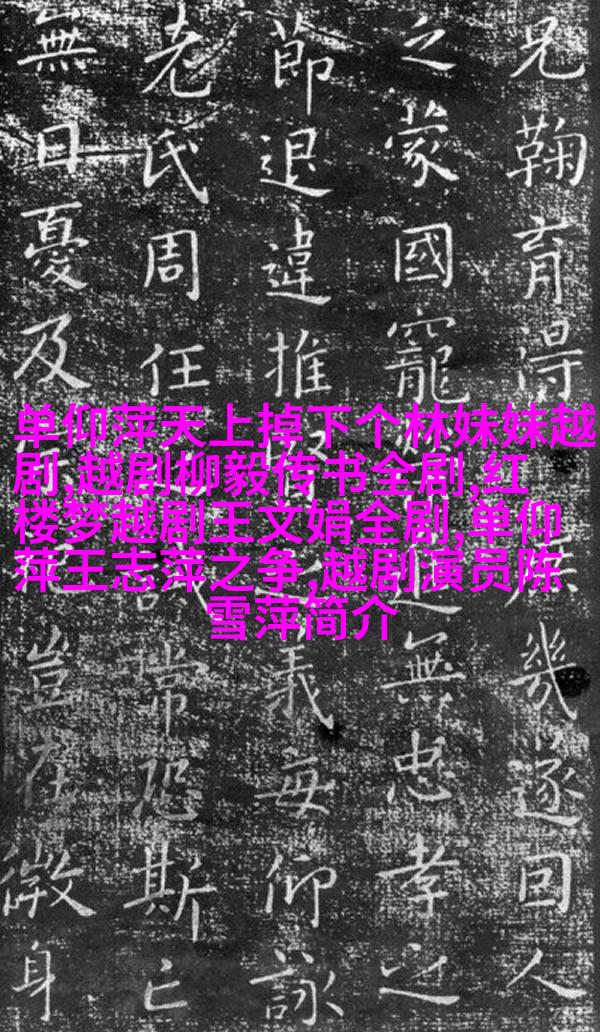 兄鞠育淂幾遂回人
之蒙國寵無忠孝之
節退違推義每仰詠
老氏周任常恐斯亡
無日憂及豈在微身
单仰萍天上掉下个林妹妹越
剧,越剧柳毅传书全剧,红
楼梦越剧王文娟全剧,单仰
萍王志萍之争,越剧演员陈
雪萍简介